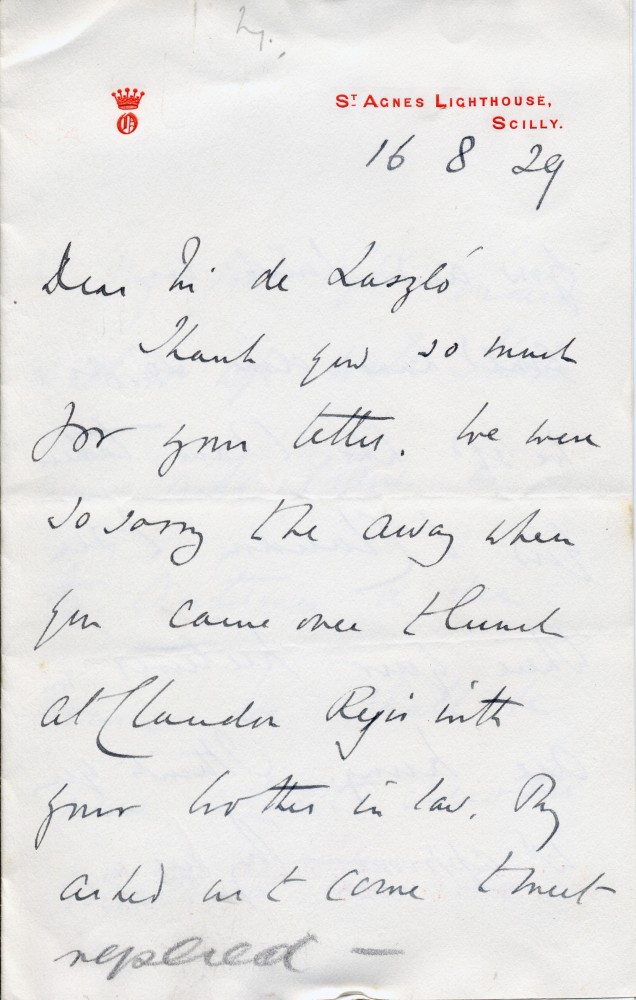 ST AGNES LIGHTHOUSE,
SCILLY.
16 8 29
Dear Mr de László
Thank you so much
for your letter. We were
so sorry to be away when
you came over to lunch
at Clandon Regis with
your brother in law. They
asked us to come to meet
replied —